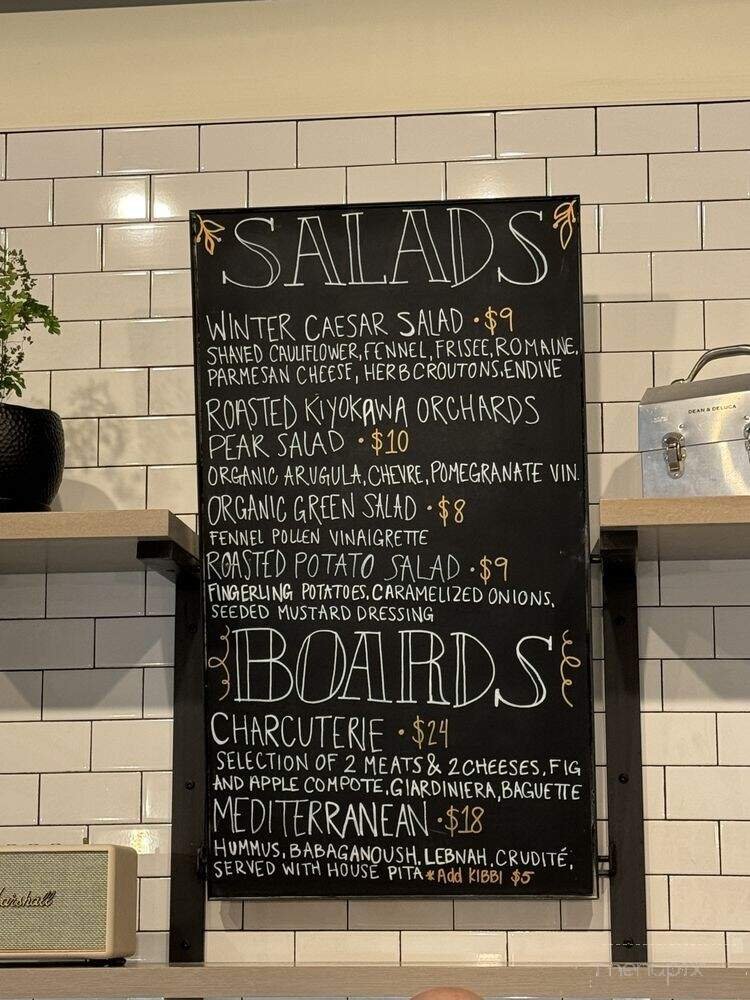 SALADS
WINTER CAESAR SALAD • $9
SHAVED CAULIFLOWER, FENNEL, FRISEE, ROMAINE,
PARMESAN CHEESE, HERB CROUTONS, ENDIVE
ROASTED KIYOKAWA ORCHARDS
PEAR SALAD • $10
ORGANIC ARUGULA, CHEVRE, POMEGRANATE VIN.
ORGANIC GREEN SALAD • $8
FENNEL POLLEN VINAIGRETTE
ROASTED POTATO SALAD • $9
FINGERLING POTATOES, CARAMELIZED ONIONS,
SEEDED MUSTARD DRESSING
BOARDS
CHARCUTERIE • $24
SELECTION OF 2 MEATS & 2 CHEESES, FIG
AND APPLE COMPOTE, GIARDINIERA, BAGUETTE
MEDITERRANEAN • $18
HUMMUS, BABAGANOUSH, LEBNAH, CRUDITÉ;
SERVED WITH HOUSE PITA *Add KIBBI $5
DEAN & DELUCA
Marshall
menupix